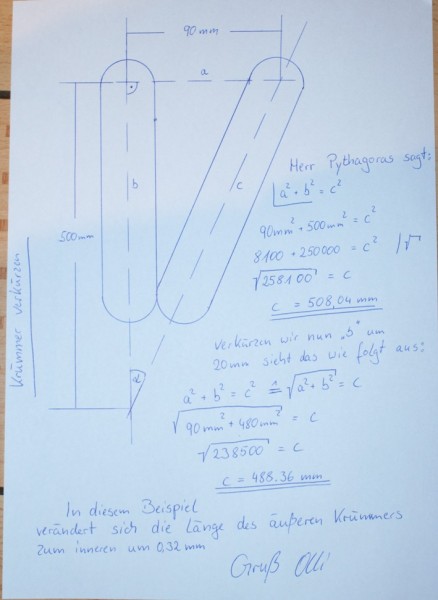 90mm
a
b
c
500mm
α
Krümmer verkürzen
Herr Pythagoras sagt:
a² + b² = c²
90mm² + 500mm² = c²
8100 + 250000 = c² /√
√258100 = c
c = 508,04 mm
verkürzen wir nun "b" um
20mm sieht das wie folgt aus:
a² + b² = c² ≙ √a² + b² = c
√90mm² + 480mm² = c
√238500 = c
c = 488.36 mm
In diesem Beispiel
verändert sich die Länge des äußeren Krümmers
zum inneren um 0,32 mm
Gruß Olli